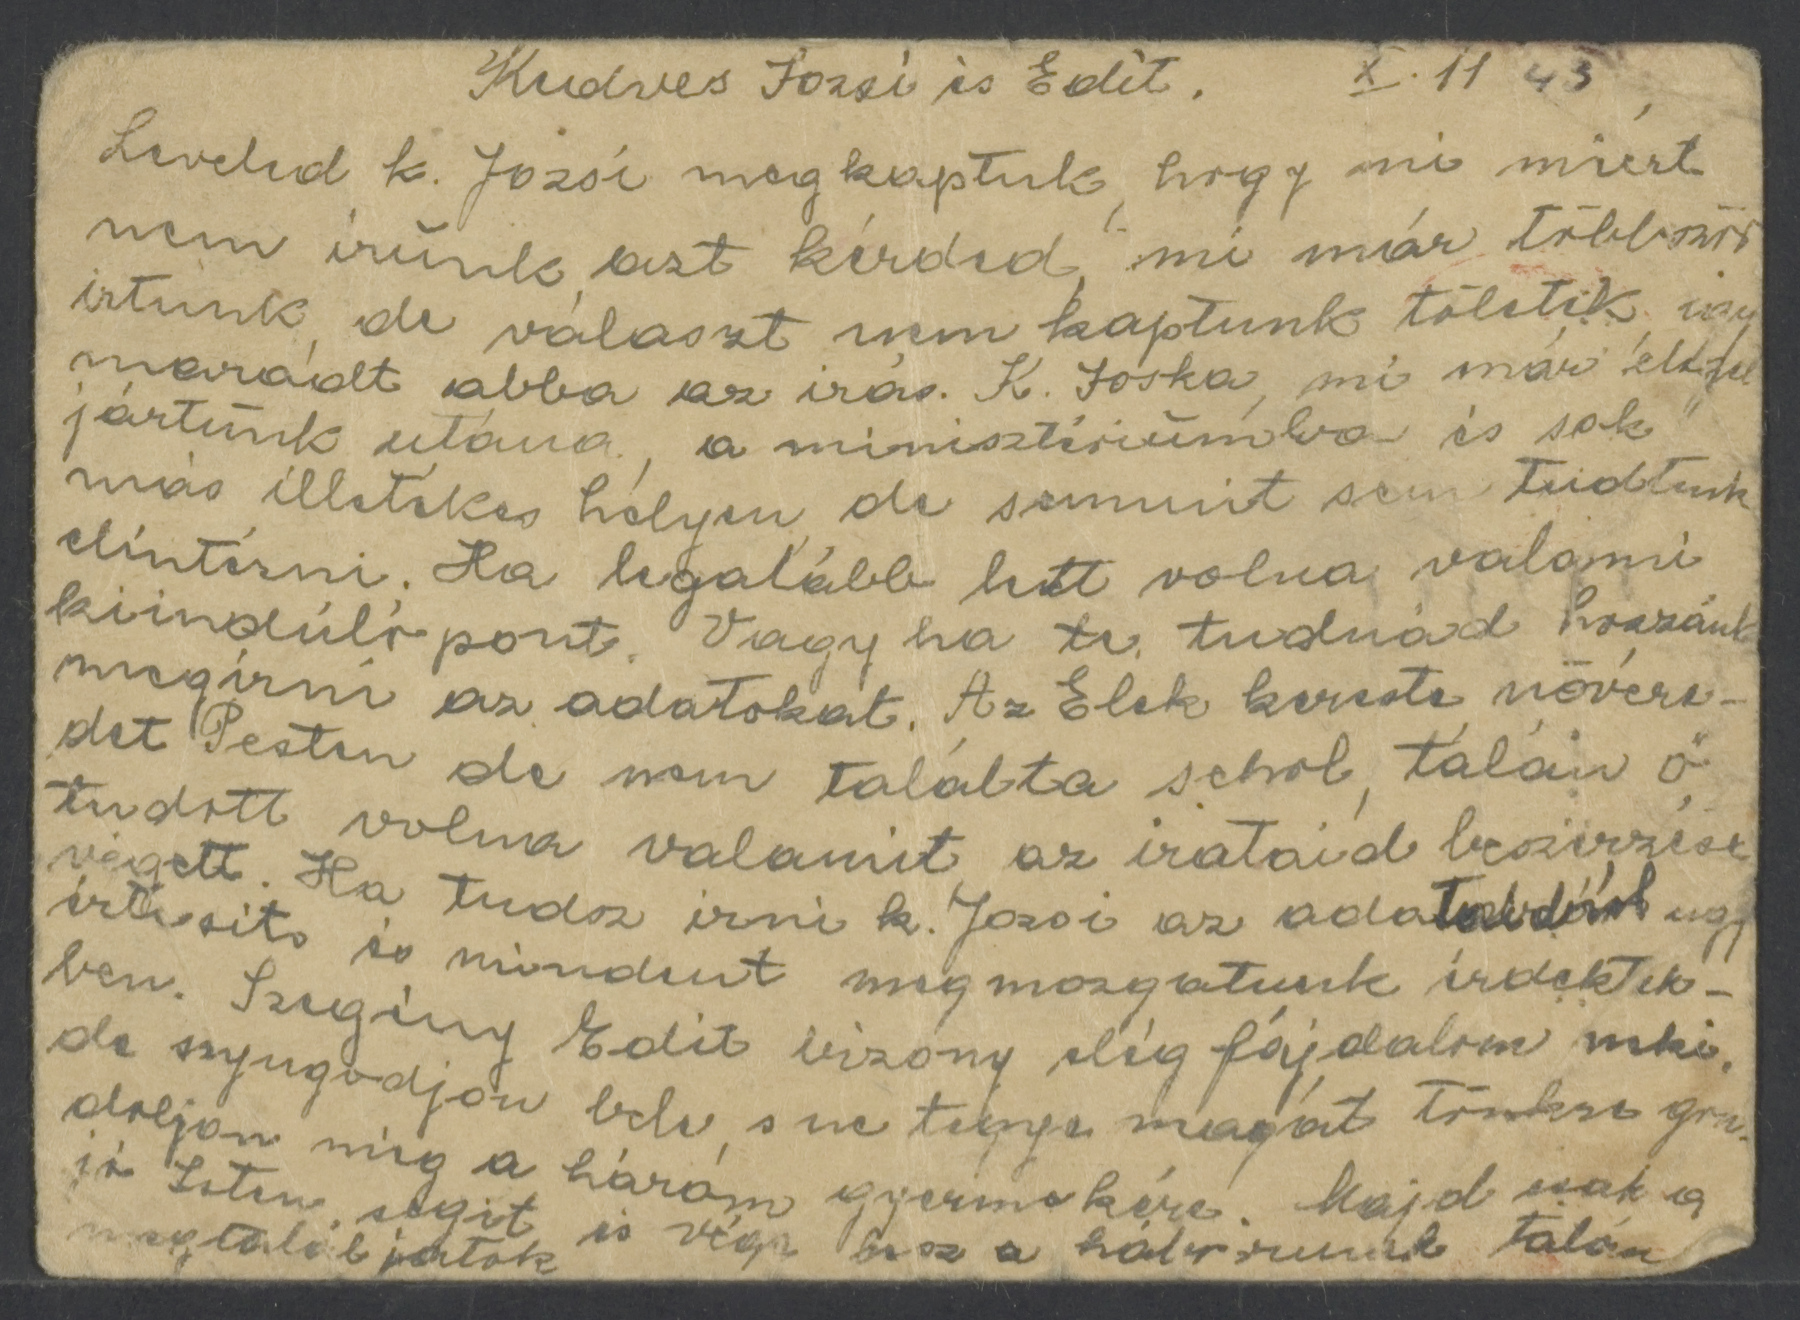 Kedves Jozsi és Edit. X. 11 43
Leveled k. Jozsi megkaptuk, hogy mi miért
nem irünk, azt kérded, mi már többször
irtunk, de választ nem kaptunk töletek, igy
maradt abba az irás. K. Joska, mi már eleget
jártünk utána, a minisztériümba és sok
más illetékes helyen, de semmit sem tudtunk
elintézni. Ha legalább lett volna valami
kiinduló pont. Vagy ha te tudnád hozzánk
megírni az adatokat. Az Elek kereste növére-
det Pesten de nem találta sehol, talán ő
tudott volna valamit az irataid beszerzése
végett. Ha tudsz irni k. Jozsi az adatokról ugy
értesits és mindent megmozgatunk érdektek-
ben. Szegény Edit bizony elég fájdalom neki,
de nyugodjon bele, s ne tegye magát tönkre gon-
doljon még a három gyermekére. Majd csak a
jó Isten segit és vége lesz a háborunak talán
megtaláljátok